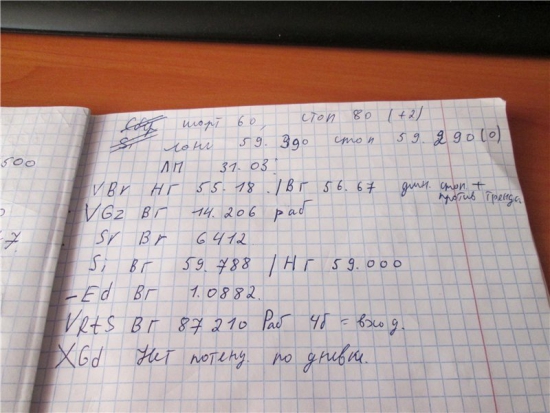 шорт 60, стоп 80 (+2)
Si лонг 59.390 стоп 59.290 (0)
ЛП 31.03:
500
VBr НГ 55.18. / ВГ 56.67 дин. стоп + против тренда.
VGz ВГ 14.206 раб
Sr Вг 6412
7
Si ВГ 59.788 / НГ 59.000
-Ed ВГ 1.0882.
VRtS ВГ 87210 Раб 4б = вход.
XGd Нет потенц. по дневке.